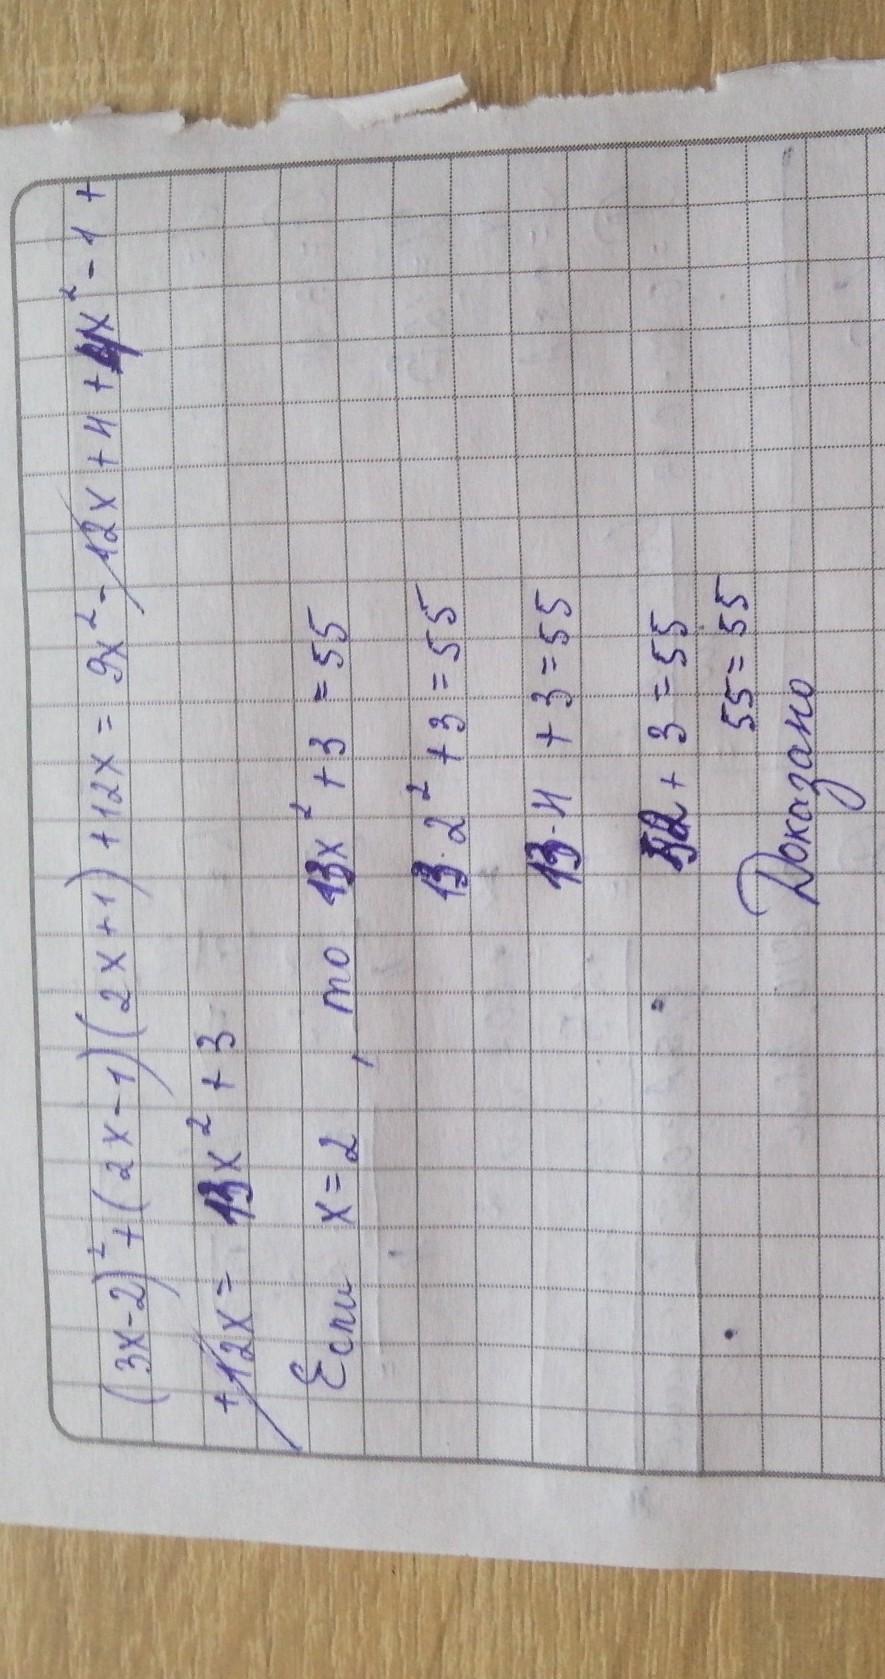 (3x-2)² + (2x-1)(2x+1) + 12x = 9x² - 12x + 4 + 4x² - 1 +
+ 12x = 13x² + 3
Если x = 2, то 13x² + 3 = 55
13·2² + 3 = 55
13·4 + 3 = 55
52 + 3 = 55
55 = 55
Доказано